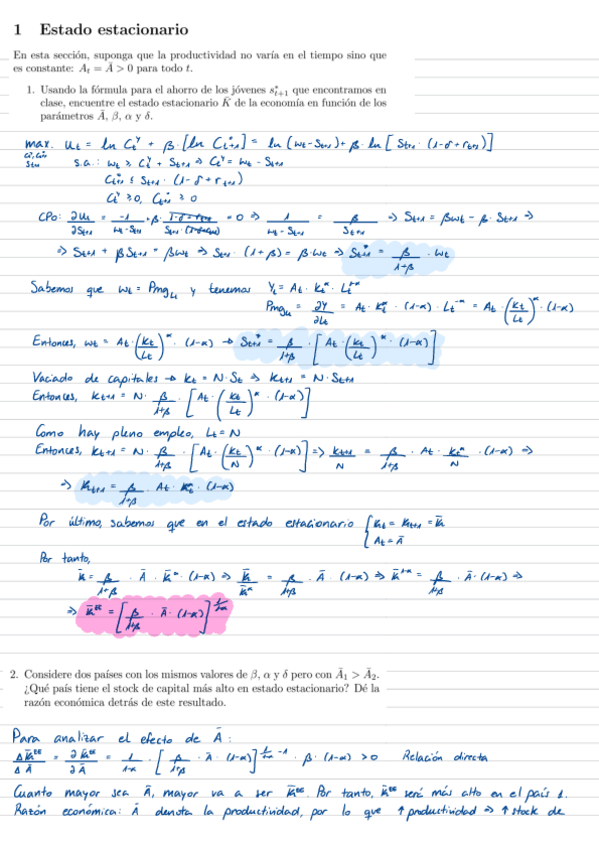 1 Estado estacionario
En esta sección, suponga que la productividad no varía en el tiempo sino que
es constante: Aₜ = Ā > 0 para todo t.
1. Usando la fórmula para el ahorro de los jóvenes s*ₜ₊₁ que encontramos en
clase, encuentre el estado estacionario K̄ de la economía en función de los
parámetros Ā, β, α y δ.
max. Uₜ = ln Cₜʸ + β·[ln Cₜ₊₁] = ln (wₜ - Sₜ₊₁) + β·ln [Sₜ₊₁·(1-δ+rₜ₊₁)]
s.a.: wₜ ≥ Cₜʸ + Sₜ₊₁ ⇒ Cₜʸ = wₜ - Sₜ₊₁
Cₜ₊₁ ≤ Sₜ₊₁·(1-δ+rₜ₊₁)
Cₜʸ ≥ 0, Cₜ₊₁ ≥ 0
CPO: ∂Uₜ/∂Sₜ₊₁ = -1/(wₜ-Sₜ₊₁) + β·(1-δ+rₜ₊₁)/(Sₜ₊₁·(1-δ+rₜ₊₁)) = 0 ⇒ 1/(wₜ-Sₜ₊₁) = β/Sₜ₊₁ ⇒ Sₜ₊₁ = βwₜ - β·Sₜ₊₁ ⇒
⇒ Sₜ₊₁ + βSₜ₊₁ = βwₜ ⇒ Sₜ₊₁·(1+β) = β·wₜ ⇒ S*ₜ₊₁ = β/(1+β)·wₜ
Sabemos que wₜ = PmgLₜ y tenemos Yₜ = Aₜ·Kₜ^α·Lₜ^(1-α)
PmgLₜ = ∂Y/∂Lₜ = Aₜ·Kₜ^α·(1-α)·Lₜ^(-α) = Aₜ·(Kₜ/Lₜ)^α·(1-α)
Entonces, wₜ = Aₜ·(Kₜ/Lₜ)^α·(1-α) → S*ₜ₊₁ = β/(1+β)·[Aₜ·(Kₜ/Lₜ)^α·(1-α)]
Vaciado de capitales → Kₜ = N·Sₜ ⇒ Kₜ₊₁ = N·Sₜ₊₁
Entonces, Kₜ₊₁ = N·β/(1+β)·[Aₜ·(Kₜ/Lₜ)^α·(1-α)]
Como hay pleno empleo, Lₜ = N
Entonces, Kₜ₊₁ = N·β/(1+β)·[Aₜ·(Kₜ/N)^α·(1-α)] ⇒ Kₜ₊₁/N = β/(1+β)·Aₜ·Kₜ^α/N·(1-α) ⇒
⇒ Kₜ₊₁ = β/(1+β)·Aₜ·Kₜ^α·(1-α)
Por último, sabemos que en el estado estacionario { Kₜ = Kₜ₊₁ = K̄
Aₜ = Ā
Por tanto,
K̄ = β/(1+β)·Ā·K̄^α·(1-α) ⇒ K̄/K̄^α = β/(1+β)·Ā·(1-α) ⇒ K̄^(1-α) = β/(1+β)·Ā·(1-α) ⇒
⇒ K̄^EE = [β/(1+β)·Ā·(1-α)]^(1/(1-α))
2. Considere dos países con los mismos valores de β, α y δ pero con Ā₁ > Ā₂.
¿Qué país tiene el stock de capital más alto en estado estacionario? Dé la
razón económica detrás de este resultado.
Para analizar el efecto de Ā:
ΔK̄^EE/ΔĀ = ∂K̄^EE/∂Ā = 1/(1-α)·[β/(1+β)·Ā·(1-α)]^(1/(1-α) -1)·β·(1-α) > 0 Relación directa
Cuanto mayor sea Ā, mayor va a ser K̄^EE. Por tanto, K̄^EE será más alto en el país 1.
Razón económica: Ā denota la productividad, por lo que ↑ productividad ⇒ ↑ stock de